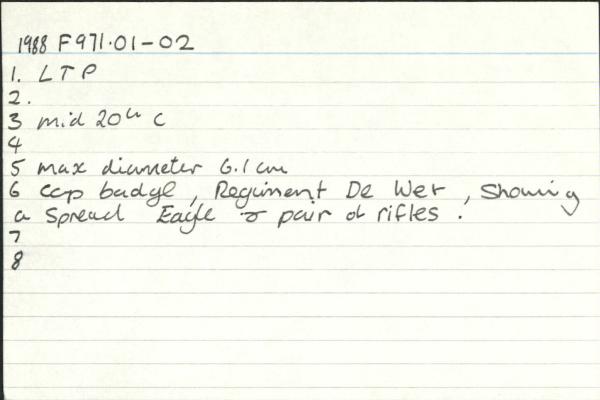 1988 F971.01-02
1. LTP
2.
3 mid 20th C
4
5 max diameter 6.1cm
6 cap badge, Regiment De Wet, showing
a Spread Eagle & pair of rifles.
7
8